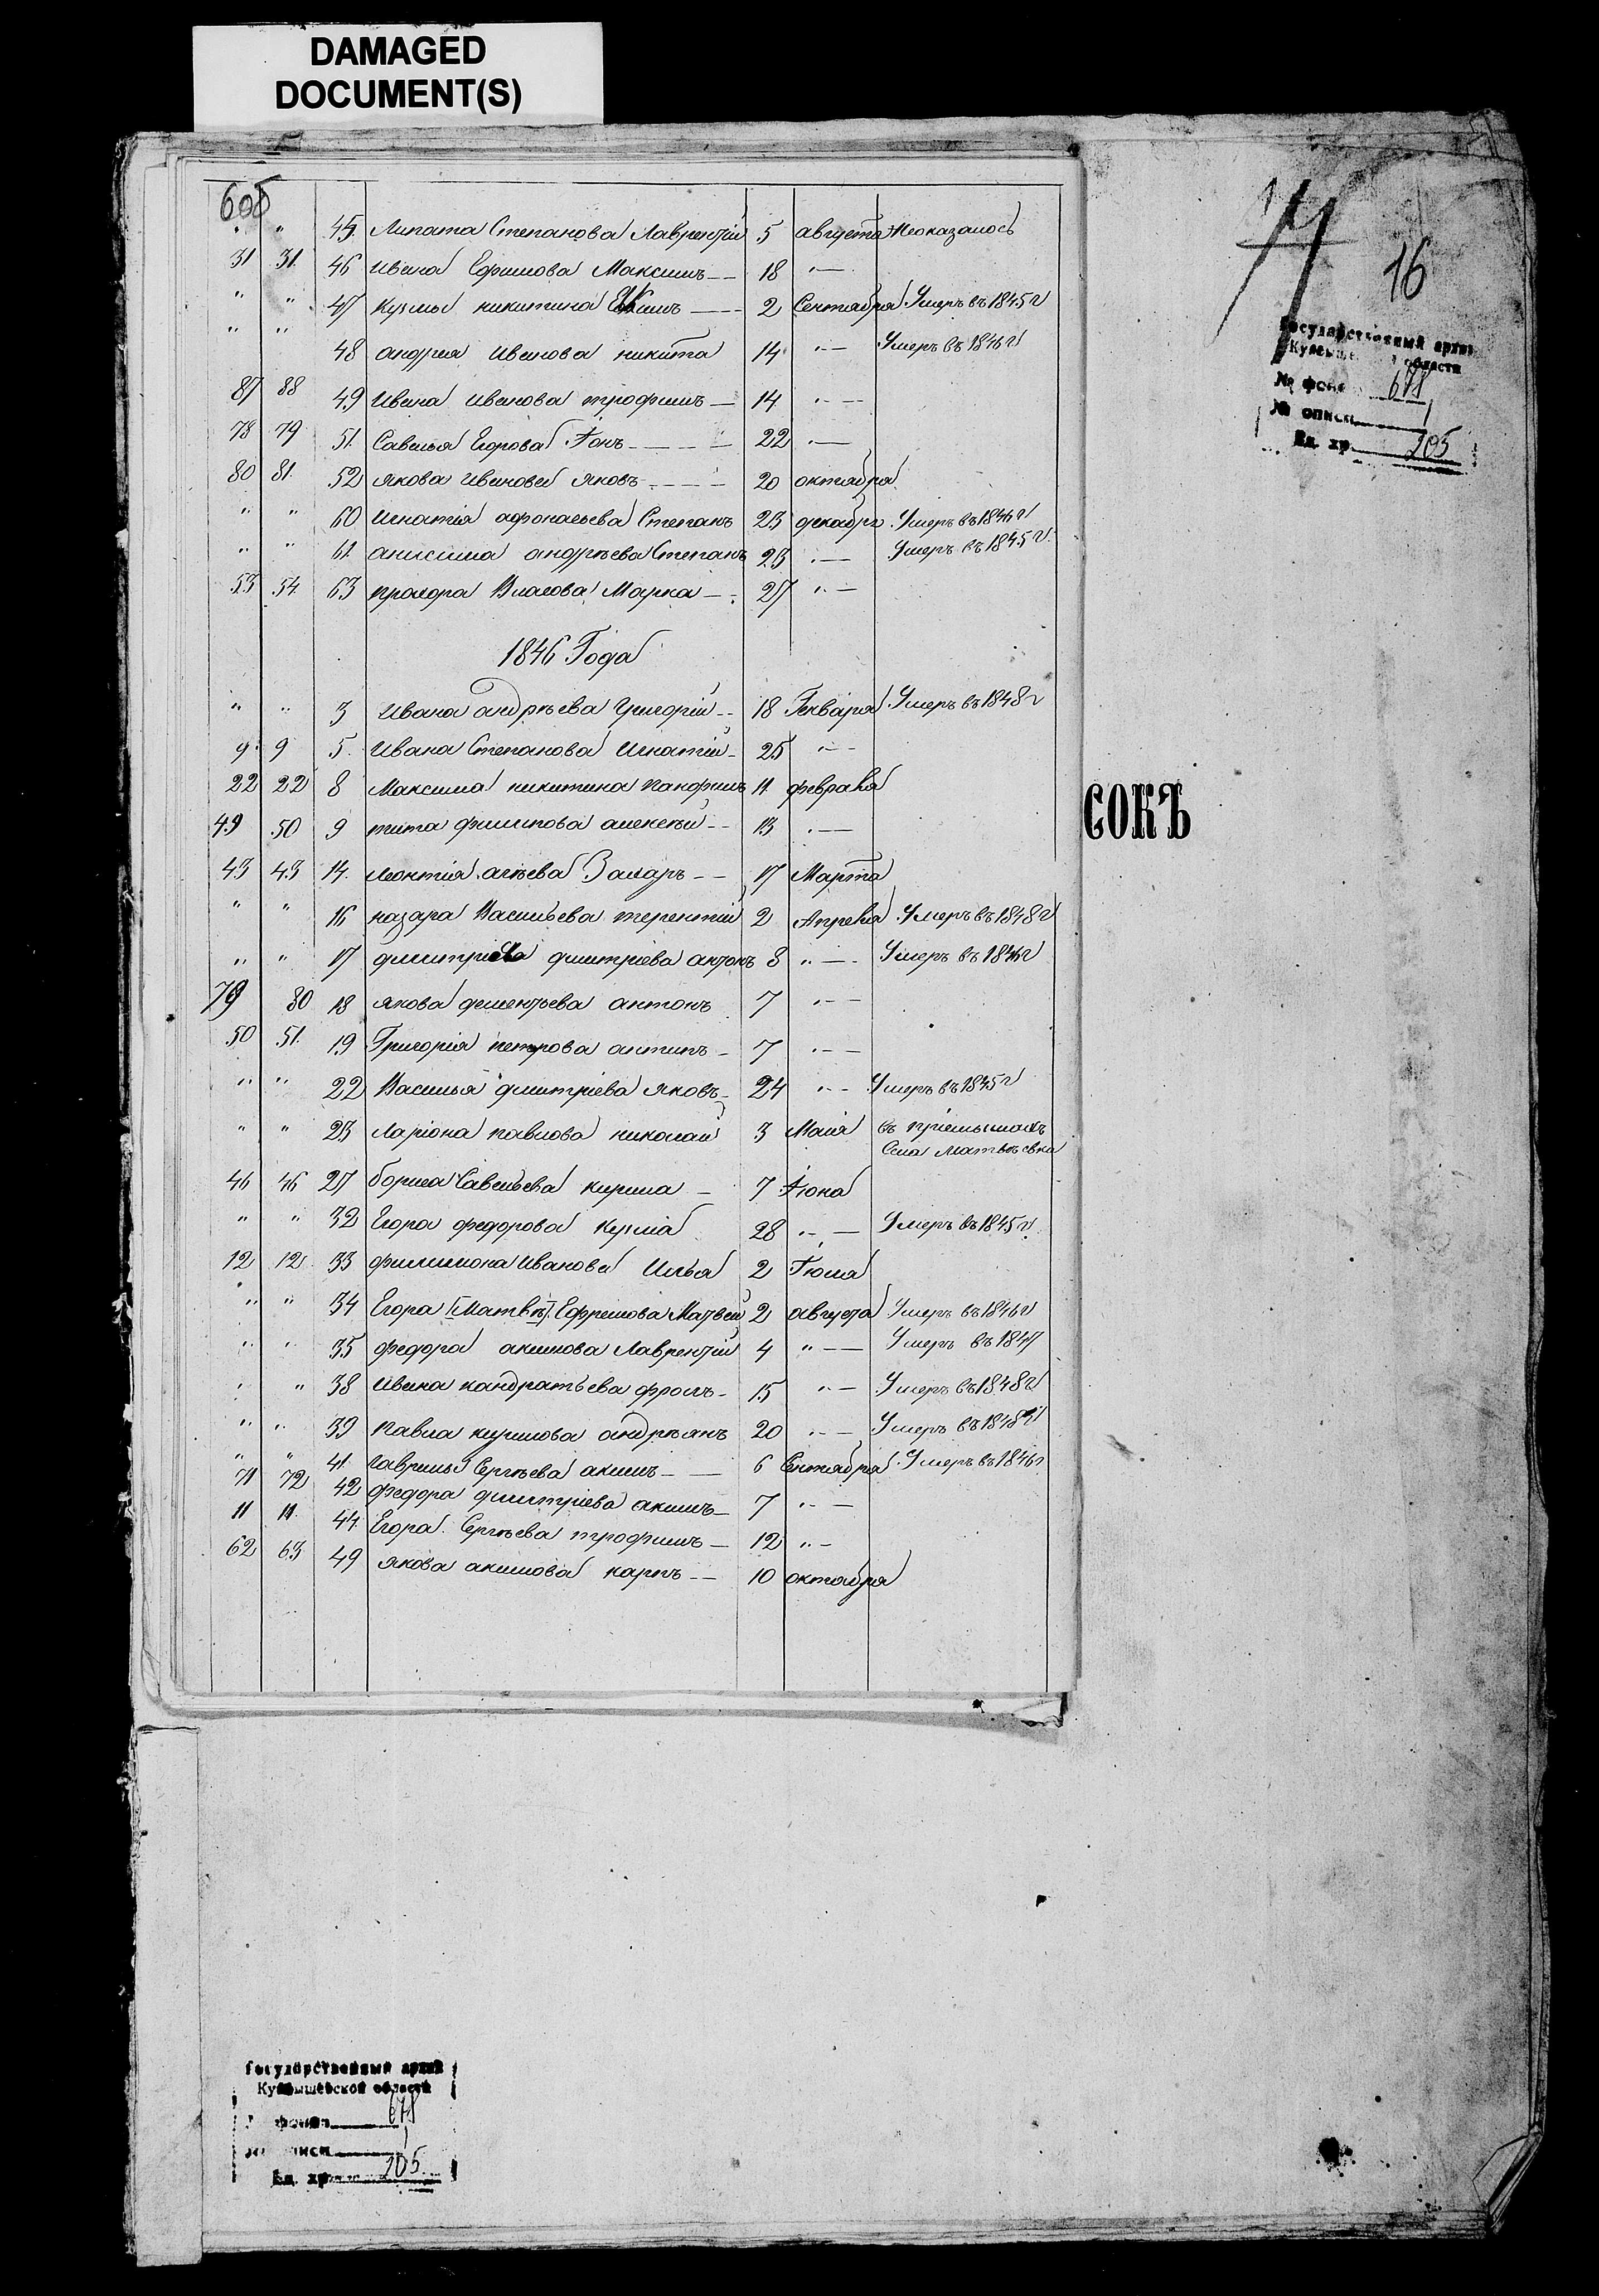 DAMAGED
DOCUMENT(S)
605
" " 45. Липата Степанова Лаврентiй 5 августа Неоказалось
31 31. 46 Ивана Ефимова Максимъ 18 "
" " 47 Кузмы никитина Екимъ 2 Сентября Умеръ въ 1845 г
" " 48 андрея Иванова никита 14 " Умеръ въ 1846 г
87 88 49 Ивана Иванова трофимъ 14 "
78 79 51. Савелья Егорова Iонъ 22 "
80 81. 52 якова Иванова яковъ 20 октября
" " 60 Игнатiя афонасьева Степанъ 23 декабря Умеръ въ 1846 г
" " 61. анисима андрѣева Степанъ 23 " Умеръ въ 1845 г.
53 54. 63 прохора Власова Марка 27 "
1846 Года
" " 3 Ивана андрѣева Григорiй 18 Генваря Умеръ въ 1848 г
9 9 5. Ивана Степанова Игнатiй 25 "
22 22 8 Максима никитина панфилъ 11. февраля
49 50 9 тита филипова алексѣй 13 "
43 43 14. леонтiя агѣева Захаръ 17 Марта
" " 16 назара Васильева терентiй 2 Апреля Умеръ въ 1848 г
" " 17 дмитрiя дмитрiева антонъ 8 " Умеръ въ 1846 г
79 80 18 якова дементьева антонъ 7 "
50 51. 19 Григорiя петрова антипъ 7 "
" " 22 Василья дмитрiева яковъ 24 " Умеръ въ 1845 г
" " 23 Ларiона павлова николай 3 Маiя въ прiемышахъ
Села матвѣевка
46 46 27 бориса Савельева кирила 7 Iюня
" " 32 Егора федорова кузма 28 " Умеръ въ 1845 г.
12 12 33 филимона Иванова Илья 2 Iюля
" " 34 Егора [Матвѣ] Ефремова Матвей 2 августа Умеръ въ 1846 г
" " 35 федора акимова Лаврентiй 4 " Умеръ въ 1847
" " 38 Ивана кандратьева фролъ 15 " Умеръ въ 1848 г
" " 39 павла кирилова андреянъ 20 " Умеръ въ 1848 г
" " 41. гаврилы Сергѣева акимъ 6 Сентября Умеръ въ 1846 г
71 72 42 федора дмитрiева акимъ 7 "
11 11. 44. Егора Сергѣева трофимъ 12 "
62 63 49 якова акимова карпъ 10 октября
16
Государственный архив
Куйбышевской области
№ фонда 678
№ описи 1
Ед. хр. 205
СОКЪ
Государственный архив
Куйбышевской области
№ фонда 678
№ описи 1
Ед. хр. 205